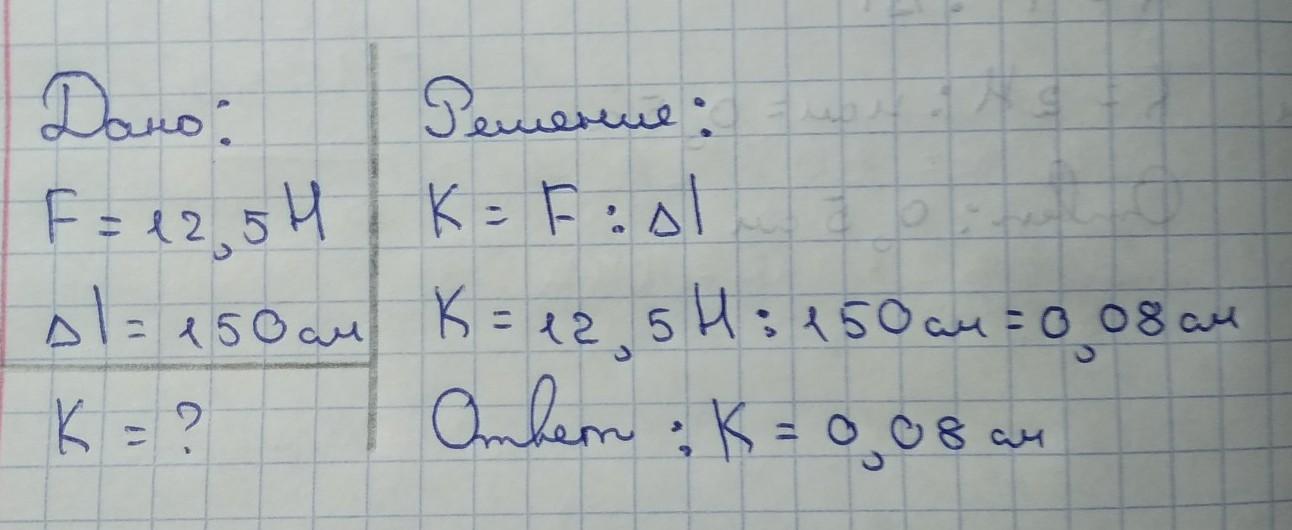 Дано:
F = 12,5 Н
Δl = 150 см
K = ?
Решение:
K = F : Δl
K = 12,5 Н : 150 см = 0,08 см
Ответ : K = 0,08 см